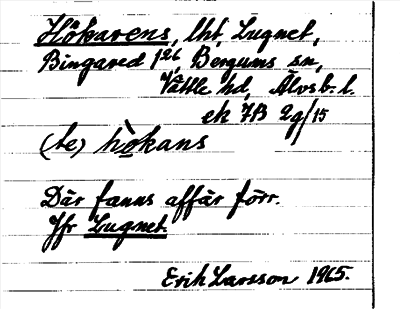 Hökarens, lht, Lugnet,
Bingared 1²⁶ Bergums sn,
Vättle hd, Älvsb. l.
ek 7B 2g/15
(te) hò̱kans
Där fanns affär förr.
Jfr Lugnet.
Erik Larsson 1965.